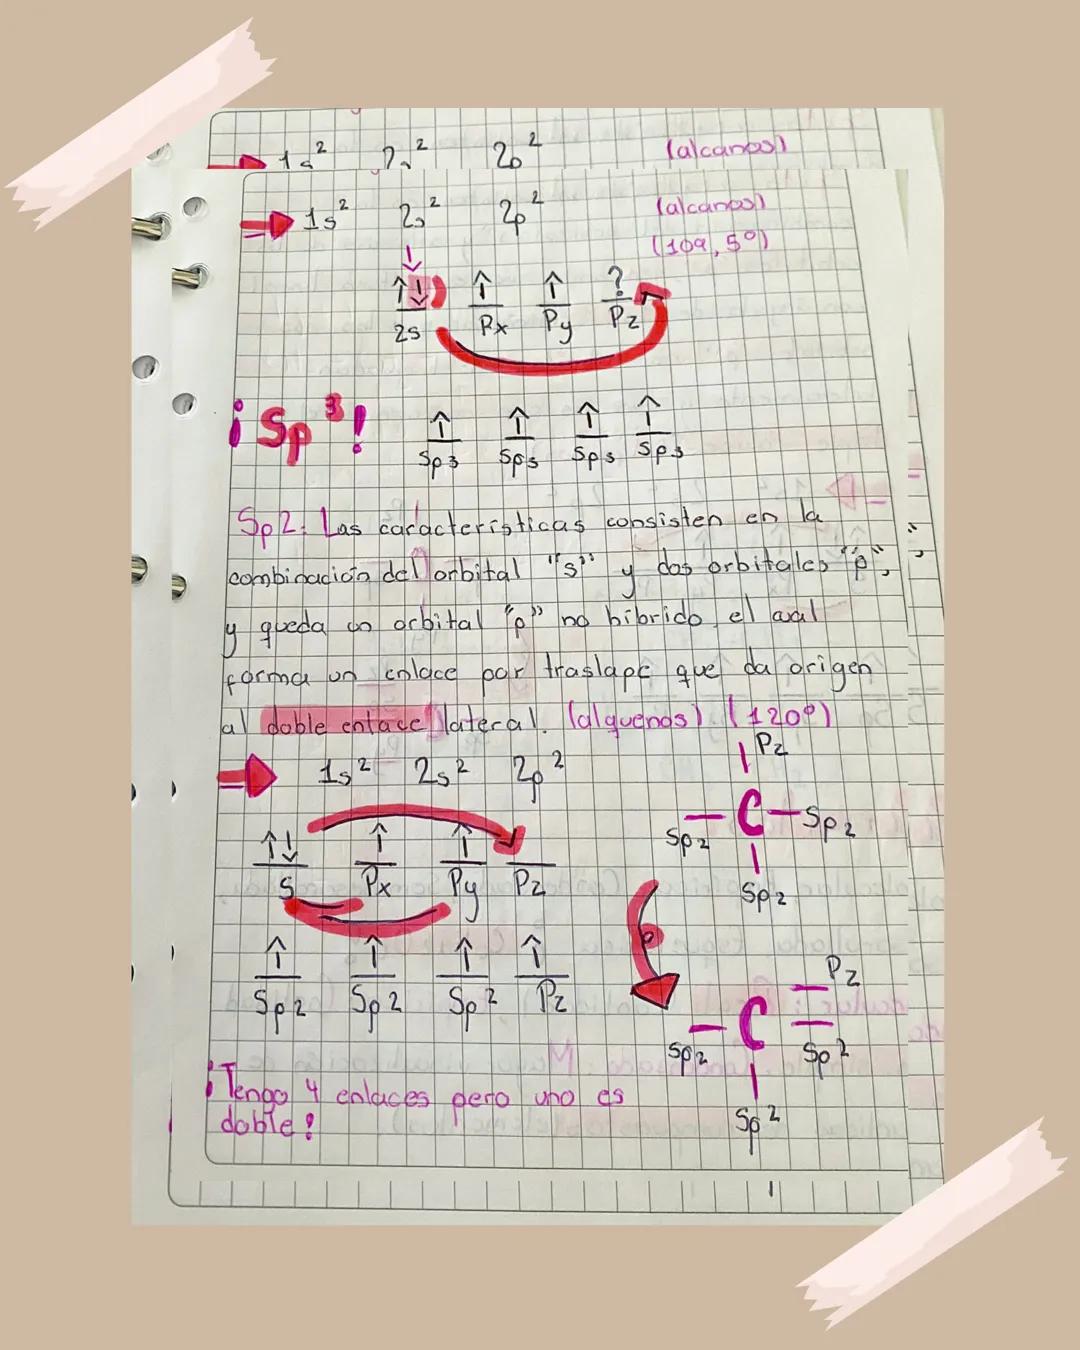 1s² 2s² 2p² (alcanos)
1s² 2s² 2p² (alcanos)
(109,5º)
?
2s Px Py Pz
¡Sp³!
Sp3 Sp3 Sp3 Sp3
Sp2: Las características consisten en la
combinación del orbital "s" y dos orbitales "p",
y queda un orbital "p" no híbrido, el cual
forma un enlace por traslape que da origen
al doble enlace lateral. (alquenos) (120º)
1s² 2s² 2p²
Pz
Sp2 C Sp2
Sp2
s Px Py Pz
Sp2 Sp2 Sp² Pz
Pz
Sp2 C Sp²
Sp²
¡Tengo 4 enlaces pero uno es
doble!